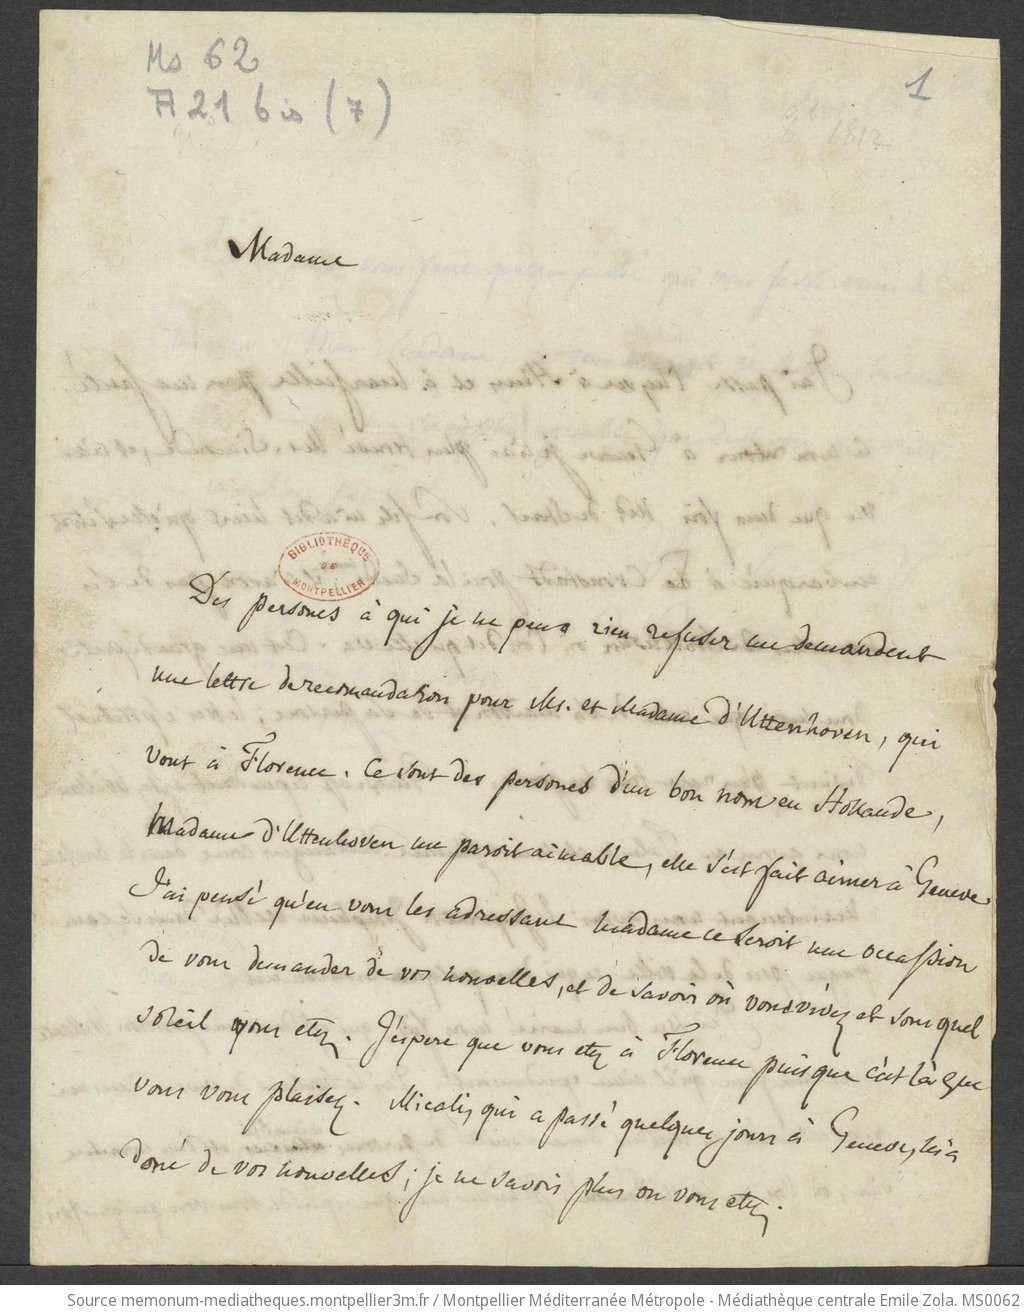 Ms 62
A 21 bis (7)
1
1812
Madame
BIBLIOTHÈQUE
DE
MONTPELLIER
Des persones à qui je ne peux rien refuser me demandent
une lettre de recomandation pour Mr. et Madame d'Uttenhoven, qui
vont à Florence. Ce sont des persones d'un bon nom en Hollande,
Madame d'Uttenhoven me paroit aimable, elle s'est fait aimer à Geneve
J'ai pensé qu'en vous les adressant Madame ce seroit une occasion
de vous demander de vos nouvelles, et de savoir où vous vivez et sous quel
soleil vous etes. J'espere que vous etes à Florence puisque c'est là que
vous vous plaisez. Micali, qui a passé quelques jours à Geneve, m'a
doné de vos nouvelles ; je ne savois plus ou vous etes.
Source memonum-mediatheques.montpellier3m.fr / Montpellier Méditerranée Métropole - Médiathèque centrale Emile Zola. MS0062